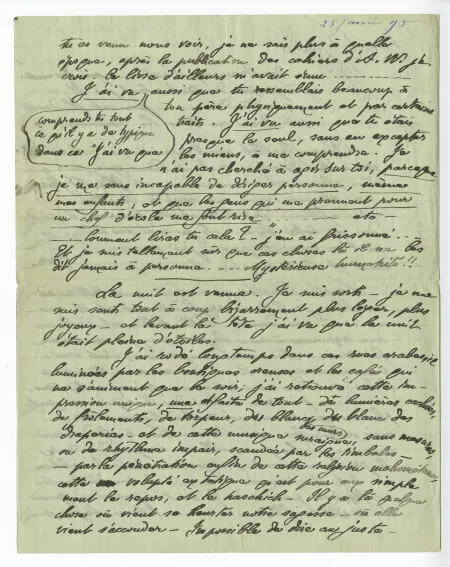 25 janvier 95
tu es venu nous voir, je ne sais plus à quelle
époque, après la publication des cahiers d'A. W je
crois. Ce livre d'ailleurs m'avait ému
J'ai vu aussi que tu ressemblais beaucoup à
ton père physiquement et par certains
traits. J'ai vu aussi que tu étais
presque le seul, sans en excepter
les miens, à me comprendre. Je
n'ai pas cherché à agir sur toi, parce que
comprends tu tout
ce qu'il y a de typique
dans ces "j'ai vu que
je me sens incapable de diriger personne, même
mes enfants, et que les gens qui me prennent pour
un chef d'école me font rire etc
Comment liras tu cela ? - "j'en ai frissonné...
Et je suis tellement sûr que ces choses là il ne les
dit jamais à personne Mystérieuse humanité !!
La nuit est venue. Je suis sorti - je me
suis senti tout à coup bizarrement plus léger, plus
joyeux - et levant la tête j'ai vu que la nuit
était pleine d'étoiles.
J'ai rôdé longtemps dans ces rues arabes,
luminées par les boutiques creuses et les cafés qui
ne s'animent que le soir ; j'ai retrouvé cette im-
pression unique, une et faite de tout - de lumières cachées,
de frôlements, de torpeur, des blancs des murs, des blancs des
draperies - et de cette musique sans mesures
ou de rhythme impair, scandée par les timbales -
- par la pénétration enfin de cette
cette volupté extatique qu'est pour eux simple
ment le repos, et le haschich - Il y a là quelque
chose où vient se heurter notre sagesse - où elle
vient s'accouder - Impossible de dire au juste -